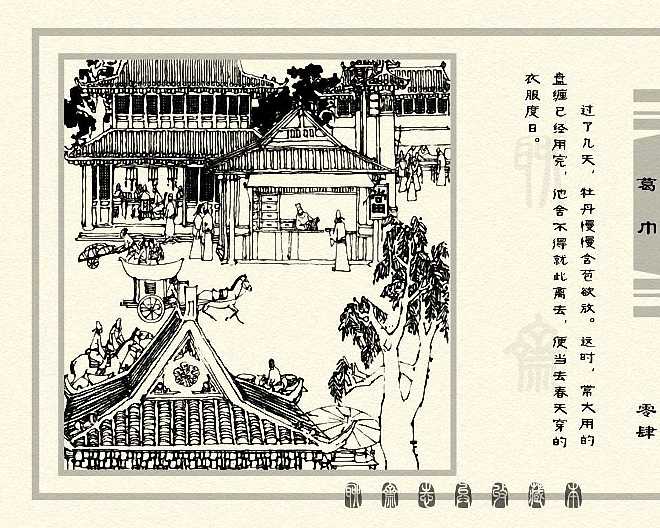 过了几天，牡丹慢慢含苞欲放。这时，常大用的
盘缠已经用完，他舍不得就此离去，便当去春天穿的
衣服度日。
葛巾
零肆
当